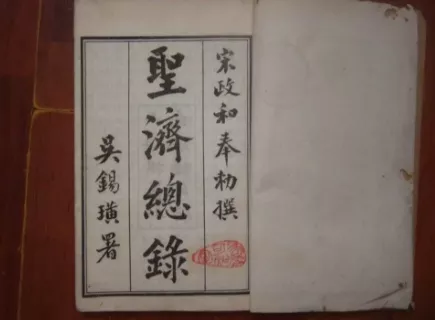 宋政和奉勅撰
聖濟總錄
吴錫璜署